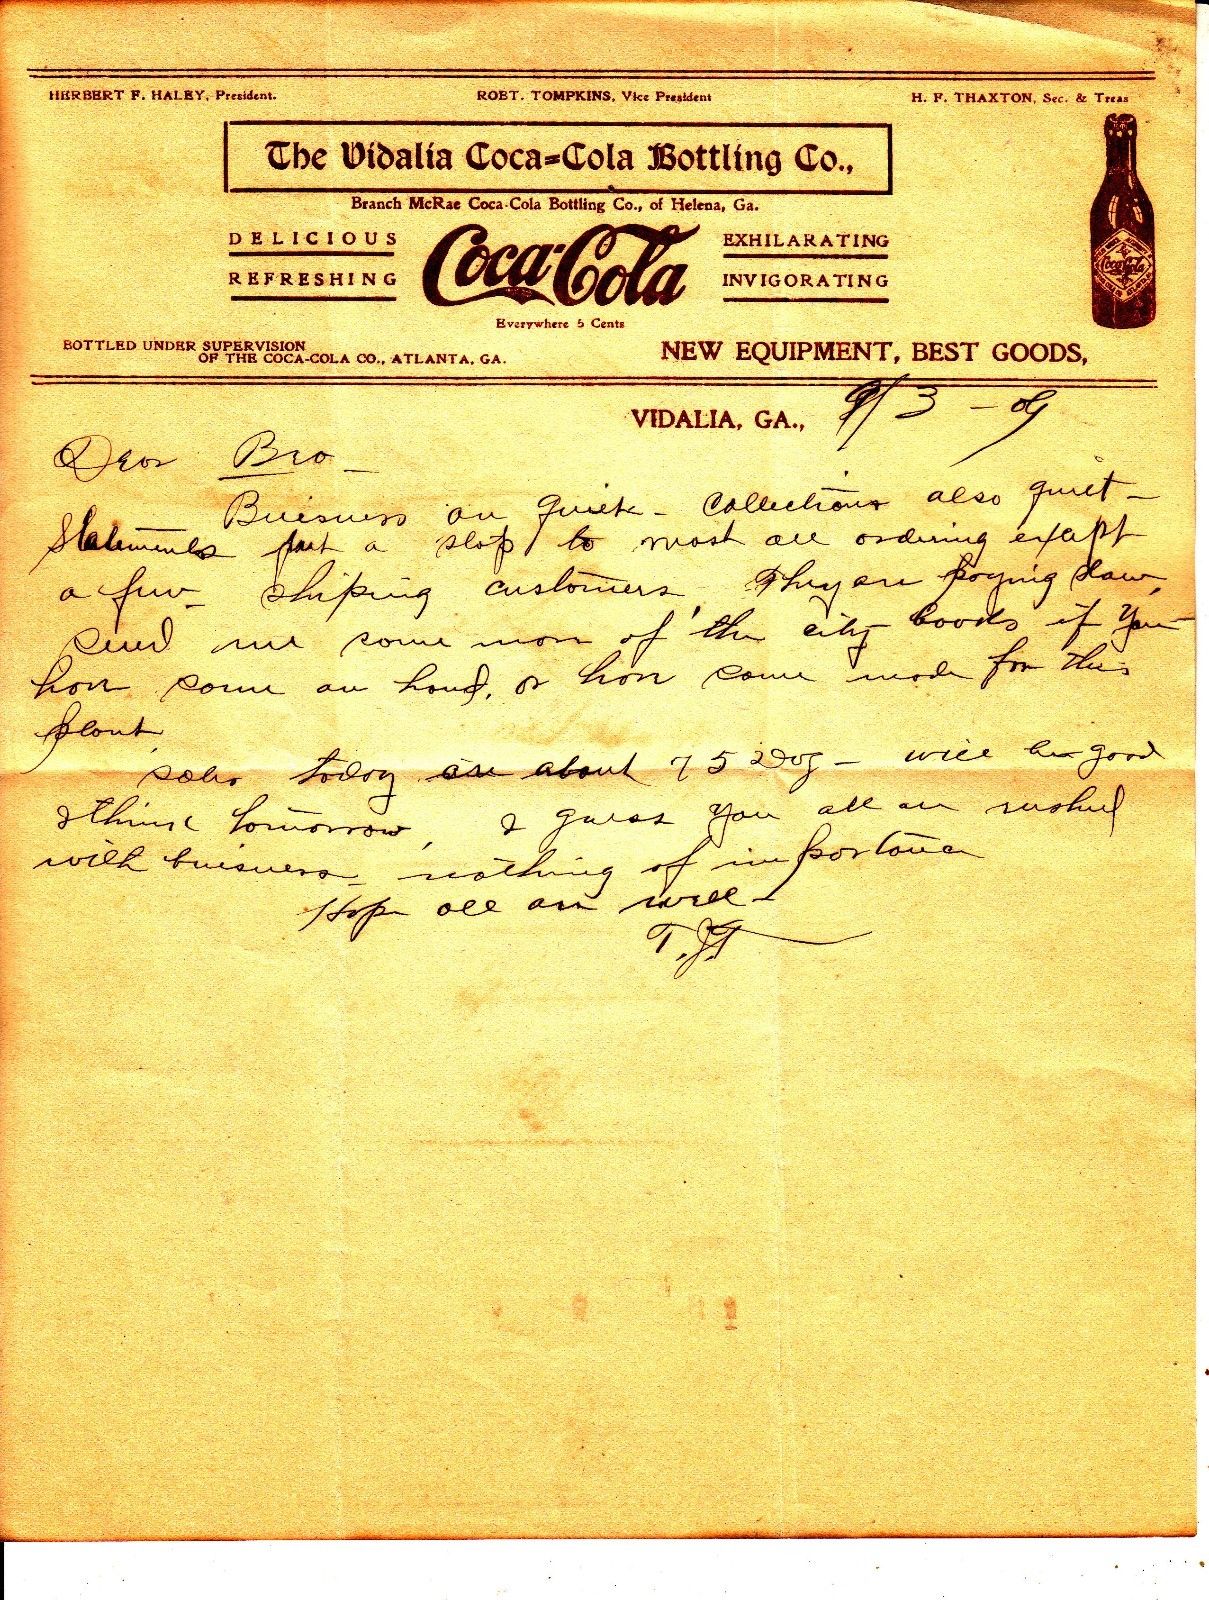 HERBERT F. HALEY, President. ROBT. TOMPKINS, Vice President H. F. THAXTON, Sec. & Treas
The Vidalia Coca=Cola Bottling Co.,
Branch McRae Coca-Cola Bottling Co., of Helena, Ga.
DELICIOUS
REFRESHING
Coca-Cola
EXHILARATING
INVIGORATING
Everywhere 5 Cents
Coca-Cola
BOTTLED UNDER SUPERVISION
OF THE COCA-COLA CO., ATLANTA, GA.
NEW EQUIPMENT, BEST GOODS,
VIDALIA, GA., 9/3-09
Dear Bro-
Buisness on quiet - Collections also quiet -
Statements put a stop to most all ordering exept
a few shiping customers. They are paying slow,
send me some more of the city books if you
have some on hand, or have some made for this
plant
Sales today are about 75 Doz - will be good
I think tomorrow, I guess you all are rushed
with buisness - nothing of importance
Hope all are well -
T.J.T